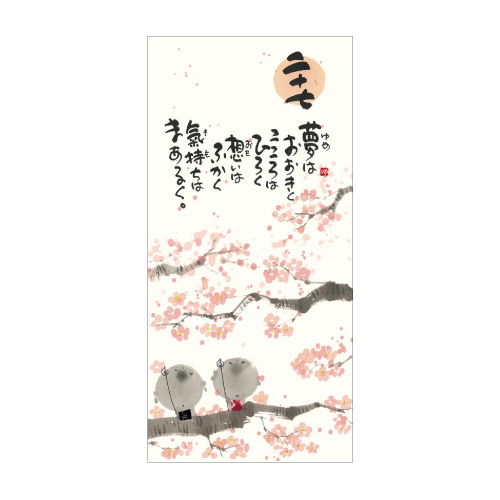 二十七
夢は
ゆめ
おおきく
こころは
ひろく
想いは
おも
ふかく
氣持ちは
きも
まあるく。